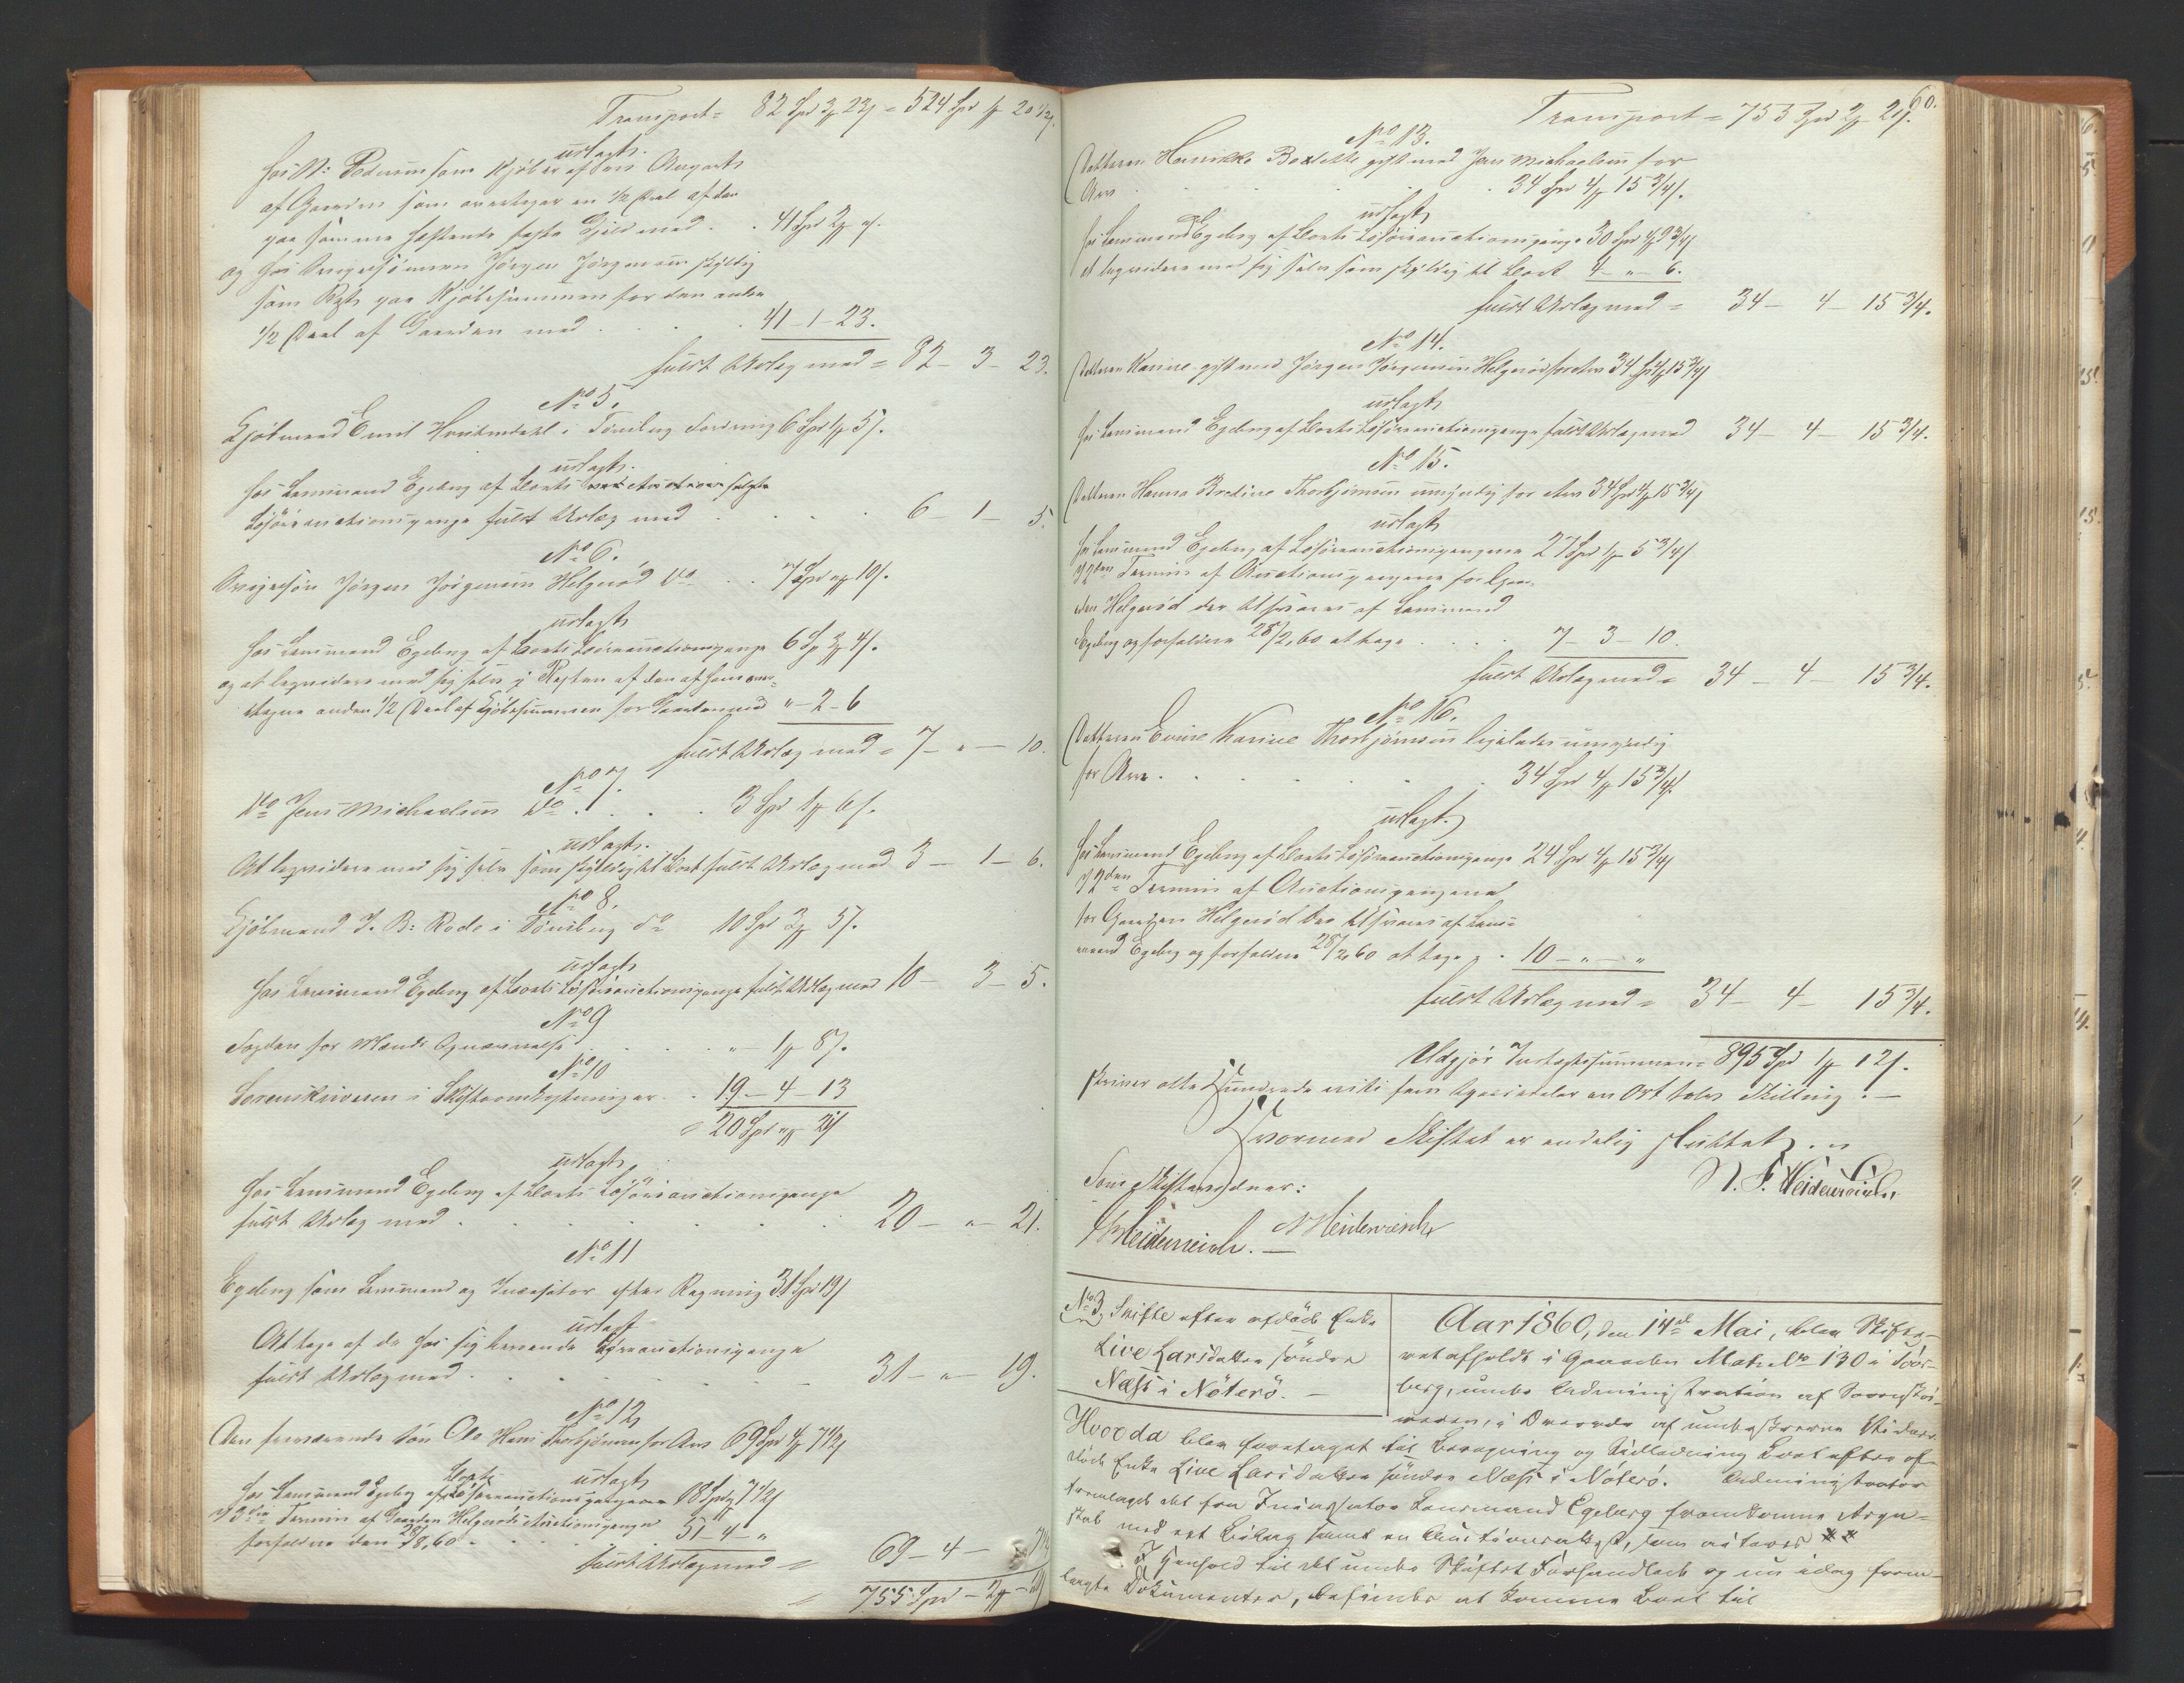 Transport = 82 Spd 3 23 = 524 Spd 20 1/2
udlagt.
Hos N: Pedersen som Kjöber af den Angarts
af Gaarden som overtager en 1/2 Deel af den
paa samme hæftende faste Gjeld med . . 41 Spd 2
og hos Svigersönnen Jörgen Jörgensen skyldig
som Rest paa Kjöbesummen for den anden
1/2 Deel af Gaarden med . . . 41 - 1 - 23.
fuldt Udlæg med = 82 - 3 - 23.
No 5.
Kjöbmand Emil i Tönsberg Fordring 6 Spd 1 5
udlagt.
hos Lensmand Egeberg af Boets
Lösöreauctionspenge fuldt Udlæg med . . . 6 - 1 - 5.
No 6.
Svigersön Jörgen Jörgensen Helgeröd do . . 7 Spd " 10
udlagt
hos Lensmand Egeberg af Boets Löröreauctionspenge 6 Sp 3 4
og at liqvidere med sig selv i Resten af den af ham over-
tagne anden 1/2 Deel af Kjöbesummen for Gaarden med " - 2 - 6
fuldt Udlæg med = 7 - " - 10.
No 7.
do Jens Michaelsen do . . . 3 Spd 1 6
udlagt.
At liqvidere med sig selv som skyldig til Boet fuldt Udlæg med 3 - 1 - 6.
No 8.
Kjöbmand J. B: Rode i Tönsberg do 10 Spd 3 5
udlagt
hos Lensmand Egeberg af Boets Lösöreauctionspenge fuldt Udlæg med 10 - 3 - 5.
No 9
Fogden for Mænds Opnævnelse . . . " 1 8
No 10
Sorenskriveren i Skifteomkostninger . . 19 - 4 - 13
= 20 Spd " 21
udlagt
hos Lensmand Egeberg af Boets Lösöreauctionspenge
fuldt Udlæg med . . . . . . 20 - " - 21.
No 11
Egeberg som Lensmand og Incasator efter Regning 31 Spd 19
udlagt
At tage af de hos sig havende Löreauctionspenge
fuldt Udlæg med . . . . . . 31 - " - 19.
No 12
Den fraværende Sön Ole Hans Thorbjörnsen for Arv 69 Spd 4 7 1/2
Boets udlagt
hos Lensmand Egeberg af Lösöreauctionspengene 18 Spd 7 1/2
Termin af Gaarden Helgeröds Auctionspenge 51 - 4 - "
forfalden den 28/8, 60 . . .
fuldt Udlæg med = 69 - 4 - 7 1/2
= 755 Spd - 2 - 21
60.
Transport = 755 Spd 2 21
No 13.
Datteren Henrikke gift med Jens Michaelsen for
Arv . . . . . 34 Spd 4 15 3/4
udlagt
hos Lensmand Egeberg af Boets Lösöreauctionspenge 30 Spd 4 9 3/4
at liqvidere med sig selv som skyldig til Boet 4 - " - 6.
fuldt Udlæg med = 34 - 4 - 15 3/4.
No 14.
Datteren Karine gift med Jörgen Jörgensen Helgeröd for Arv 34 Spd 4 15 3/4
udlagt
hos Lensmand Egeberg af Boets Lösöreauctionspenge fuldt Udlæg med 34 - 4 - 15 3/4.
No 15.
Datteren Hanna Bredine Thorbjörnsen umyndig for Arv 34 Spd 4 15 3/4
udlagt
hos Lensmand Egeberg af Lösöreauctionspengene 27 Spd 1 5 3/4
i 2den Termin af Auctionspengene for Gaar-
den Helgeröd der tilsvares af Lensmand
Egeberg og forfalden 28/2, 60 at tage . . . 7 - 3 - 10.
fuldt Udlæg med = 34 - 4 - 15 3/4.
No 16.
Datteren Karine Thorbjörnsen ligeledes umyndig
for Arv . . . . . 34 Spd 4 15 3/4
udlagt
hos Lensmand Egeberg af Boets Lösöreauctionspenge 24 Spd 4 15 3/4
i 2den Termin af Auctionspengene
for Gaarden Helgeröd der tilsvares af Lens-
mand Egeberg og forfalden 28/2, 60 at tage . . 10 - " - "
fuldt Udlæg med = 34 - 4 - 15 3/4.
Udgjör Indtægtssummen = 895 Spd 1 12
skriver otte Hundrede niti fem Speciedaler en Ort tolv Skilling. —
Hvormed Skiftet er endelig sluttet . "
N. F. Heidenreich.
Som Skiftevidner:
Heidenreich. — N Heidenreich
No 3, Skifte efter afdöde Enke
Live Larsdatter söndre
Næss i Nöterö. —
Aar 1860, den 14de Mai, blev Skifte-
ret afholdt i Gaarden Matr. No 130 i Töns-
berg, under Administration af Sorenskri-
veren, i Overvær af underskrevne Vidner
Hvor da blev foretaget til Beregning og Udlodning Boet efter af-
döde Enke Live Larsdatter söndre Næss i Nöterö. Administrator
fremlagde det fra Incassator Lensmand Egeberg fremkomne Regn-
skab med et Bilag samt en Auctionsudskrift, som acteres **
I Henhold til det under Skiftet Forhandlede og nu idag frem-
lagte Dokumenter, befindes at komme Boet til